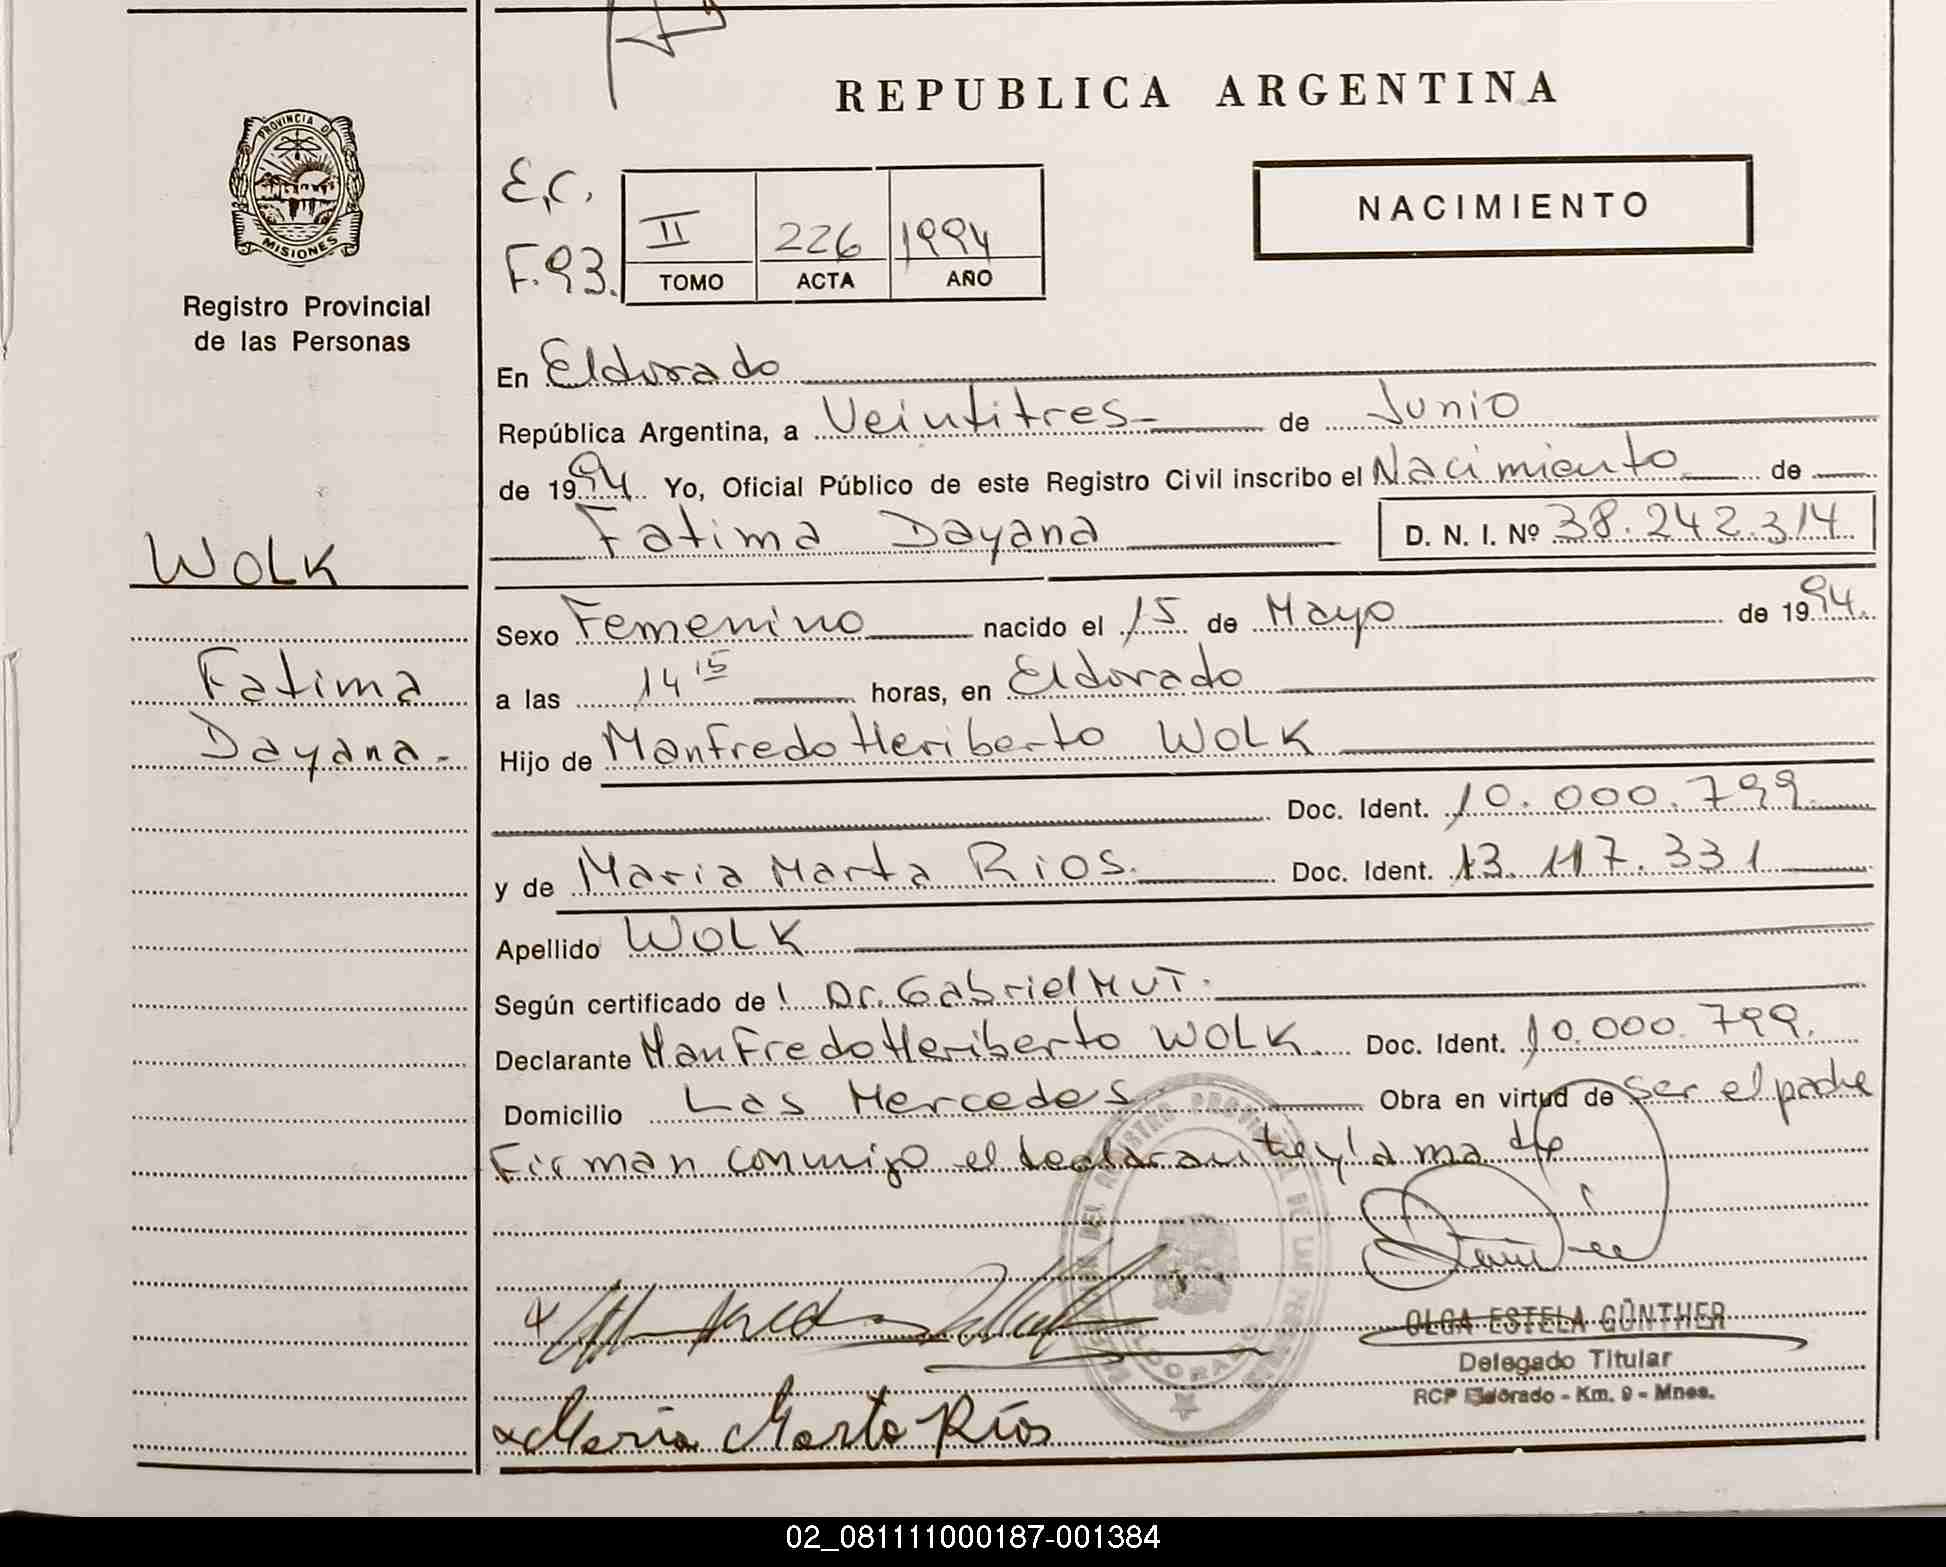 REPUBLICA ARGENTINA
PROVINCIA DE
MISIONES
Registro Provincial
de las Personas
E.C.
F.93.
II 226 1994
TOMO ACTA AÑO
NACIMIENTO
WOLK
Fatima
Dayana-
En Eldorado
República Argentina, a Veintitres- de Junio
de 1994 Yo, Oficial Público de este Registro Civil inscribo el Nacimiento de
Fatima Dayana D. N. I. Nº 38.242.314
Sexo Femenino nacido el 15 de Mayo de 1994.
a las 14 15 horas, en Eldorado
Hijo de Manfredo Heriberto WOLK
Doc. Ident. 10.000.799
y de Maria Marta Rios. Doc. Ident. 13.117.331
Apellido WOLK
Según certificado de Dr. Gabriel MUT.
Declarante Manfredo Heriberto WOLK Doc. Ident. 10.000.799.
Domicilio Las Mercedes Obra en virtud de ser el padre
Firman conmigo el declarante y la madre
OLGA ESTELA GÜNTHER
Delegado Titular
RCP Eldorado - Km. 9 - Mnes.
Maria Marta Ríos
02_081111000187-001384